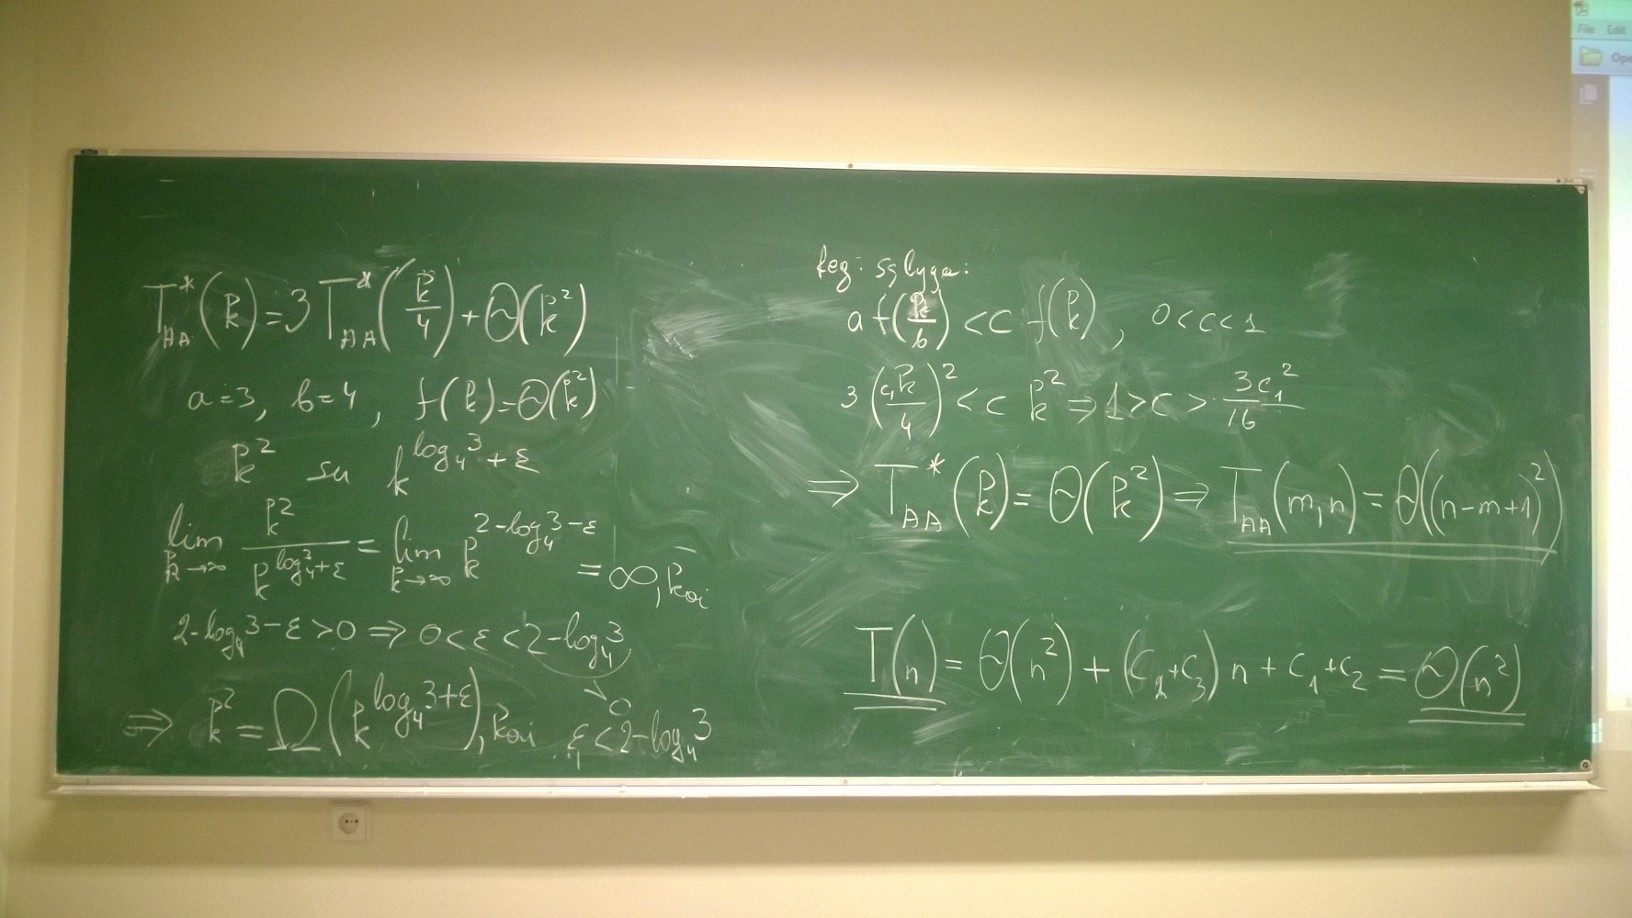 T*_AA(k) = 3 T*_AA(k/4) + Θ(k²)
a=3, b=4, f(k)=Θ(k²)
k² su k^(log₄3+ε)
lim k→∞ k²/k^(log₄3+ε) = lim k→∞ k^(2-log₄3-ε) = ∞, kai
2-log₄3-ε>0 ⇒ 0<ε<2-log₄3
∨
0
⇒ k² = Ω(k^(log₄3+ε)), kai ε<2-log₄3
Reg. sąlyga:
a f(k/b) < c f(k), 0<c<1
3(c₁k/4)² < c k² ⇒ 1>c> 3c₁²/16
⇒ T*_AA(k) = Θ(k²) ⇒ T_AA(m,n) = Θ((n-m+1)²)
T(n) = Θ(n²) + (c₂+c₃)n + c₁+c₂ = Θ(n²)
File Edit